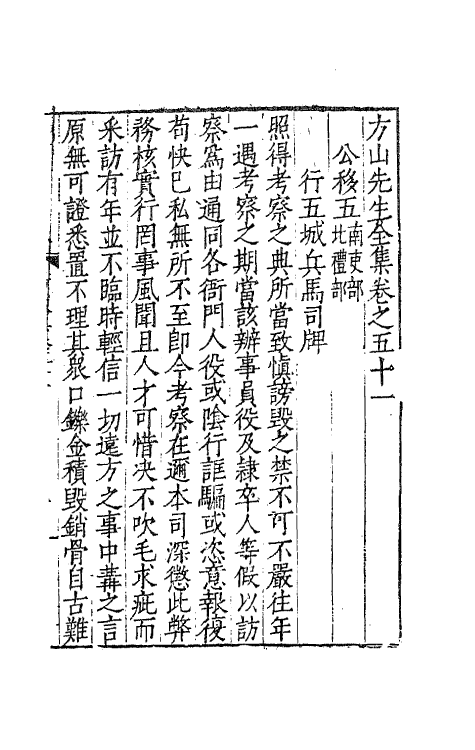 方山先生全集卷之五十一
公移五南吏部北禮部
行五城兵馬司牌
照得考察之典所當致慎謗毀之禁不可不嚴往年
一遇考察之期當該辦事員役及隷卒人等假以訪
察爲由通同各衙門人役或陰行誆騙或恣意報復
苟快巳私無所不至即今考察在邇本司深懲此弊
務核實行罔事風聞且人才可惜决不吹毛求疵而
采訪有年並不臨時輕信一切遠方之事中冓之言
原無可證悉置不理其衆口鑠金積毀銷骨自古難